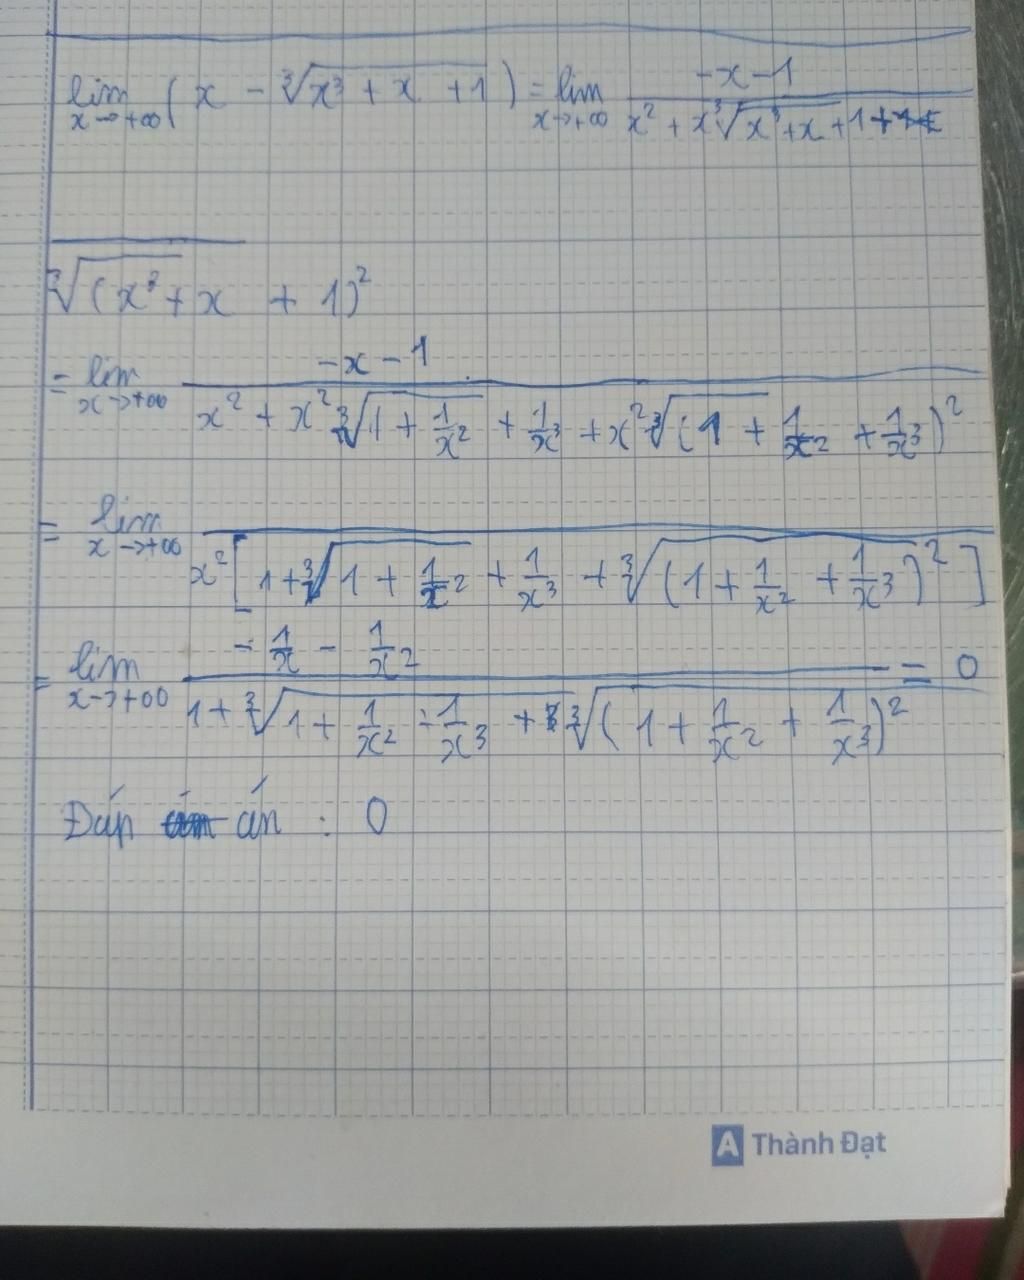 lim x→+∞ ( x - ∛(x³ + x + 1) ) = lim x→+∞ (-x-1) / (x² + x∛(x³+x+1) +
∛((x³+x + 1)²)
= lim x→+∞ (-x-1) / (x² + x²∛(1 + 1/x² + 1/x³) + x²∛((1 + 1/x² + 1/x³)²))
= lim x→+∞ / x²[1+∛(1 + 1/x² + 1/x³) + ∛((1 + 1/x² + 1/x³)²)]
= lim x→+∞ (-1/x - 1/x²) / (1+∛(1 + 1/x² + 1/x³) + ∛((1 + 1/x² + 1/x³)²)) = 0
Đáp án : 0
A Thành Đạt